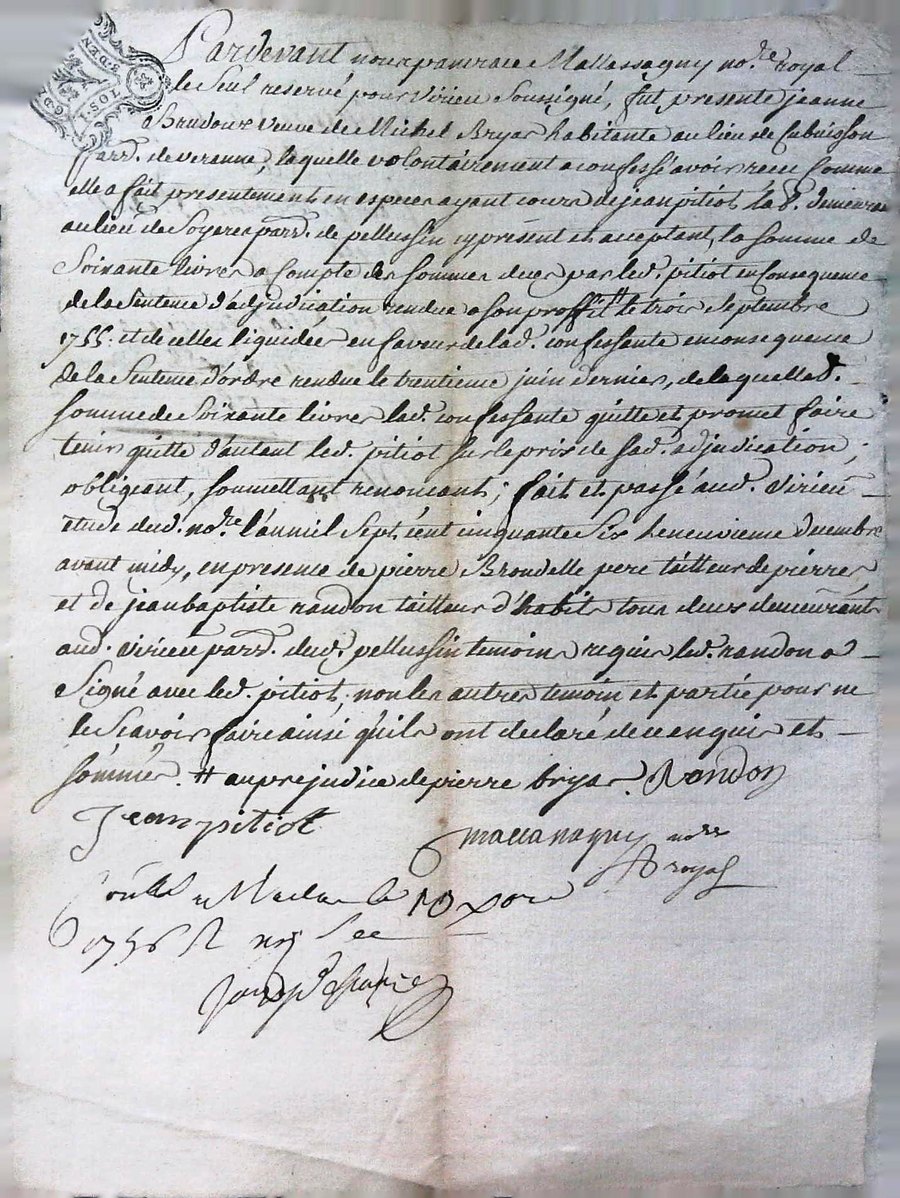 1.SOL
6.DEN
Pardevant nous pancrace Mallassagny no.re royal
le Seul reservé pour virieu Soussigné, fut presente jeanne
Brudoux veuve de Michel Bryas habitante au lieu de
parr. de veranne, laquelle volontairement a confessé avoir receu comme
elle a fait presentement en especes ayant cours de jean pitiot demeurant
au lieu de Soyeres parr. de pellussin cy present et acceptant, la somme de
Soixante livres a Compte des sommes dues par led. pitiot en Consequence
de la Sentence d'adjudication rendue a son proffit # le trois Septembre
1755. et de celles liquidées en faveur de lad. confessante en consequence
de la Sentence d'ordre rendue le trentieme juin dernier, de laquelle d.
somme de Soixante livres lad. confessante quitte et promet faire
tenir quitte d'autant led. pitiot sur le prix de sad. adjudication;
obligeant, soumettant, renoncant; fait et passé aud. virieu
etude dud. no.re l'an mil Sept cent cinquante Six le neuvieme decembre
avant midy, en presence de pierre Brondelle pere tailleur de pierres,
et de jean baptiste randon tailleur d'habits tous deux demeurants
aud. virieu parr. dud. pellussin temoins requis led. randon a
Signé avec led. pitiot, non les autres temoin et partie pour ne
le Scavoir faire ainsi qu'ils ont declaré de ce enquis et
sommés. # au prejudice de pierre bryas. Randon
Jean pitiot
mallassagny no.re
royal
le 10 xbre
1756 R